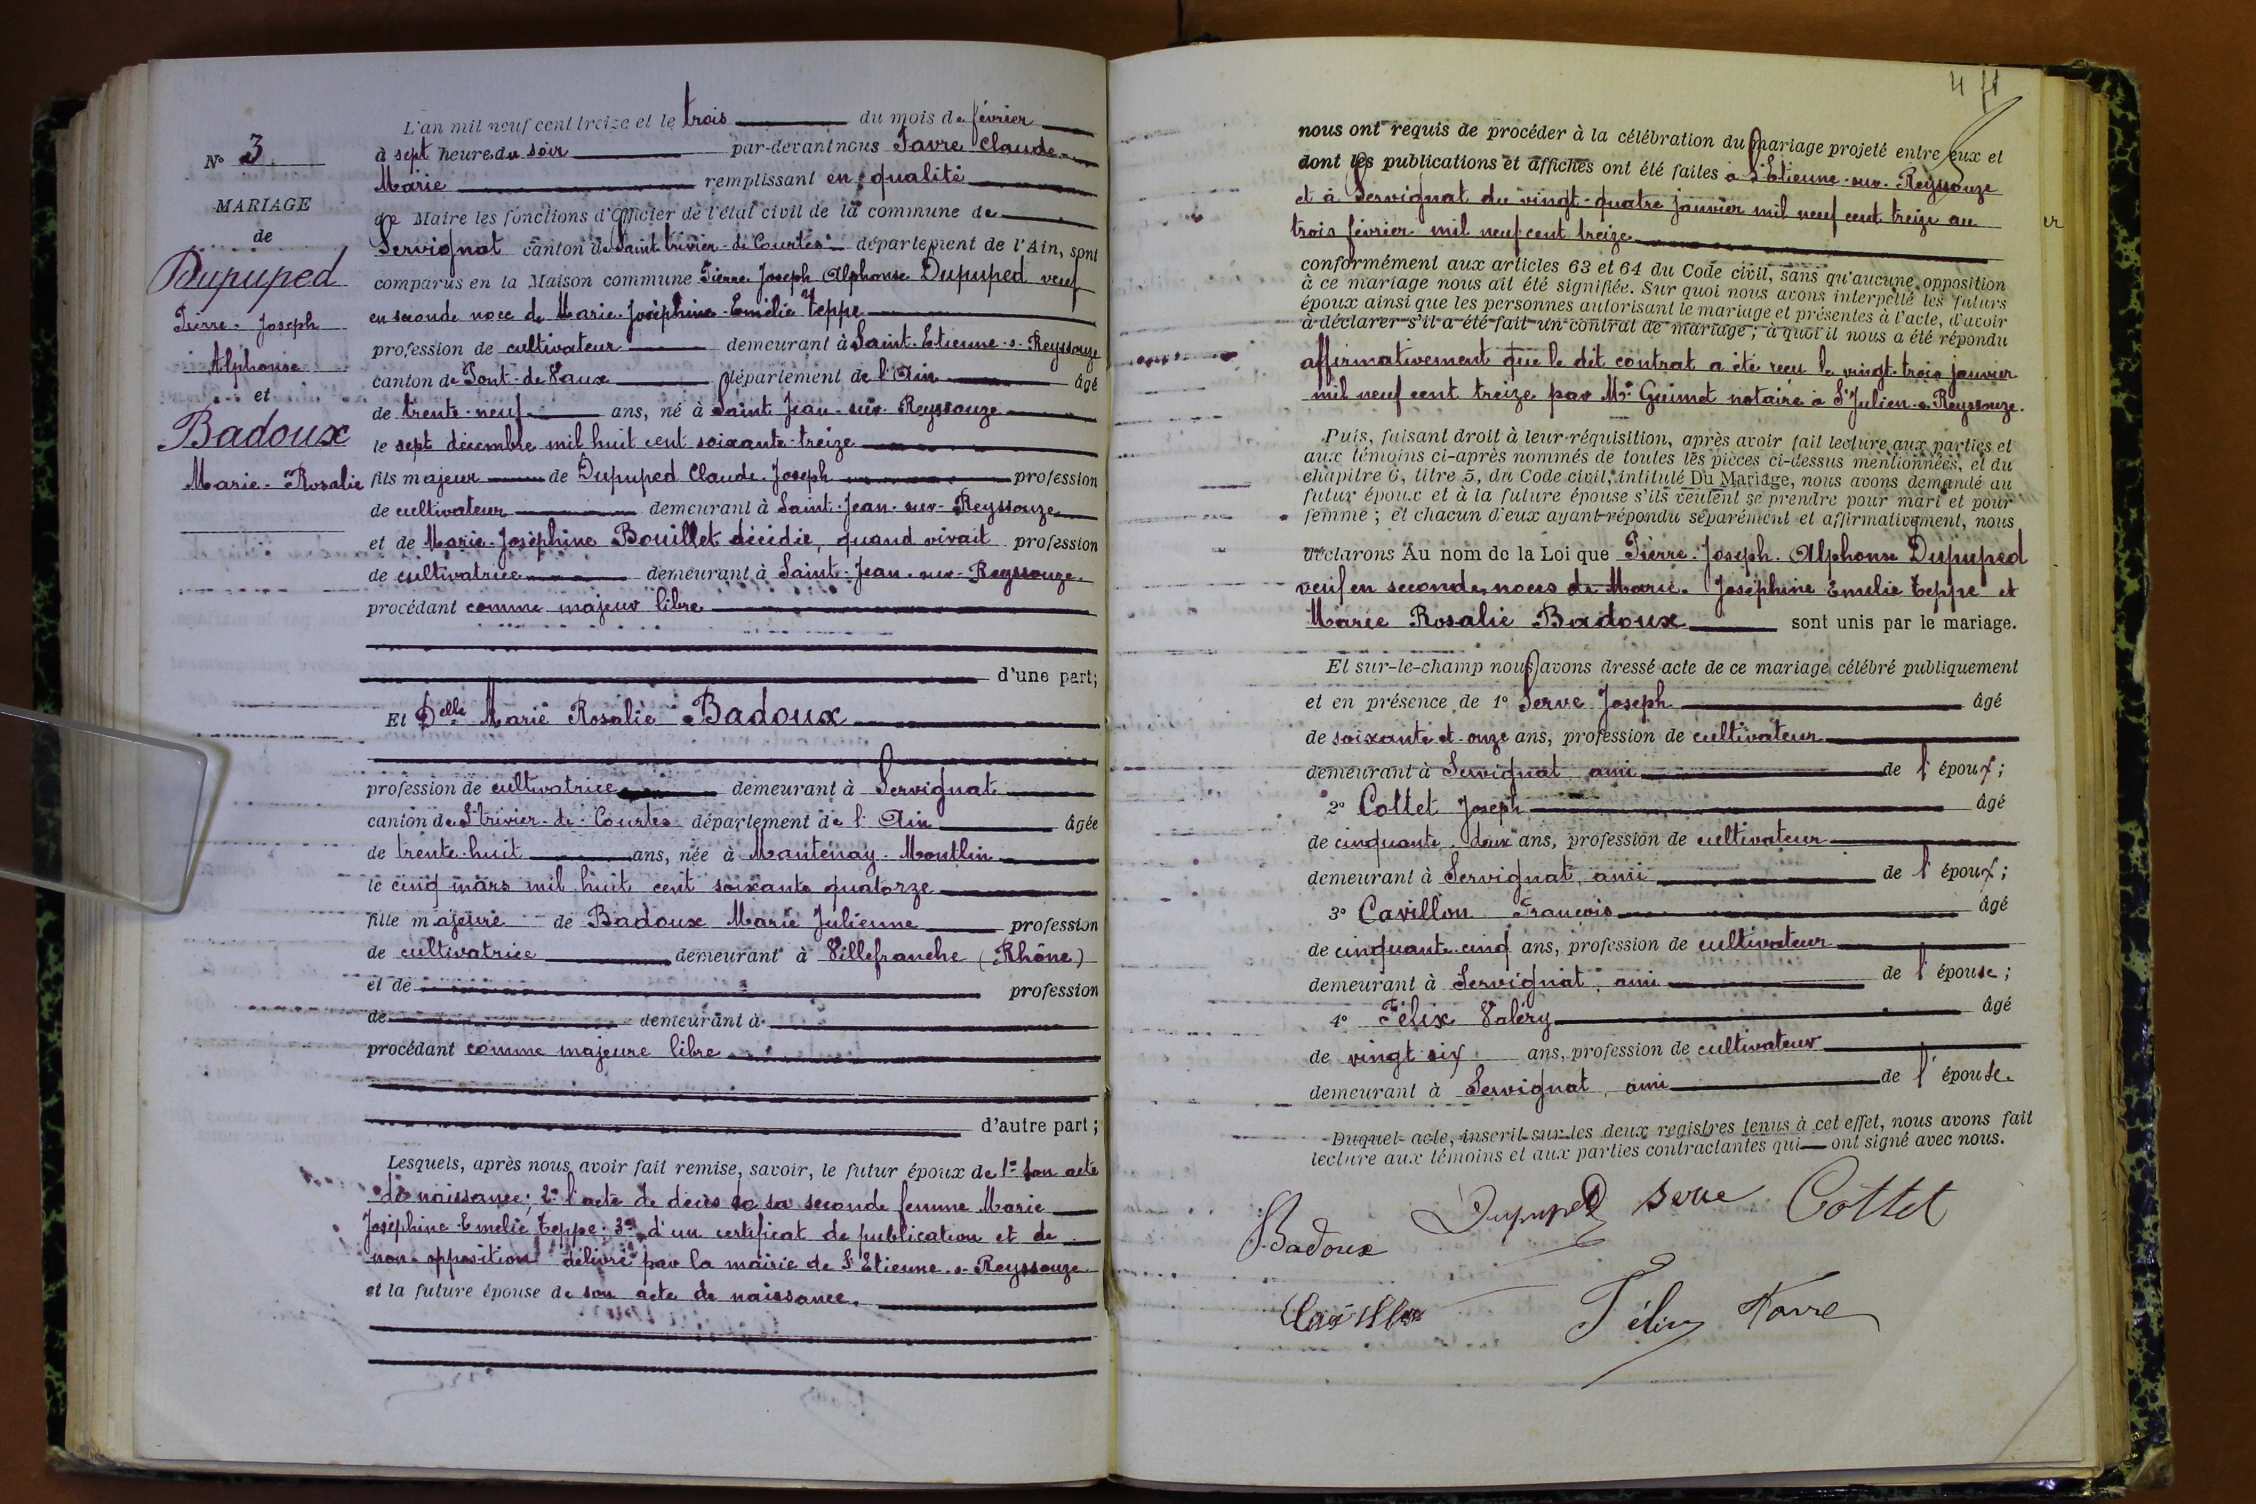 N° 3
MARIAGE
de
Dupuped
Pierre-Joseph
Alphonse
et
Badoux
Marie-Rosalie
L'an mil neuf cent treize et le trois du mois de février
à sept heures du soir par-devant nous Favre Claude
Marie remplissant en qualité
de Maire les fonctions d'Officier de l'état civil de la commune de
Servignat canton de Saint trivier-de-Courtes département de l'Ain, sont
comparus en la Maison commune Pierre Joseph Alphonse Dupuped veuf
en seconde noce de Marie-Joséphine-Emélie Teppe
profession de cultivateur demeurant à Saint-Etienne-s-Reyssouze
canton de Pont-de-Vaux département de l'Ain âgé
de trente-neuf ans, né à Saint Jean-sur-Reyssouze
le sept décembre mil huit cent soixante-treize
fils majeur de Dupuped Claude-Joseph profession
de cultivateur demeurant à Saint-Jean-sur-Reyssouze
et de Marie-Joséphine Bouillet décédée, quand vivait profession
de cultivatrice demeurant à Saint-Jean-sur-Reyssouze.
procédant comme majeur libre
d'une part;
Et Delle Marie Rosalie Badoux
profession de cultivatrice demeurant à Servignat
canton de St trivier-de-Courtes département de l'Ain âgée
de trente-huit ans, née à Mantenay-Montlin
le cinq mars mil huit cent soixante quatorze
fille majeure de Badoux Marie Julienne profession
de cultivatrice demeurant à Villefranche (Rhône)
et de profession
de demeurant à
procédant comme majeure libre
d'autre part;
Lesquels, après nous avoir fait remise, savoir, le futur époux de 1° son acte
de naissance; 2° l'acte de décès de sa seconde femme Marie
Joséphine-Emélie Teppe; 3° d'un certificat de publication et de
non-opposition délivré par la mairie de St Etienne-s-Reyssouze
et la future épouse de son acte de naissance.
4 41
nous ont requis de procéder à la célébration du mariage projeté entre eux et
dont les publications et affiches ont été faites à St Etienne-sur-Reyssouze
et à Servignat du vingt-quatre janvier mil neuf cent treize au
trois février mil neuf cent treize
conformément aux articles 63 et 64 du Code civil, sans qu'aucune opposition
à ce mariage nous ait été signifiée. Sur quoi nous avons interpellé les futurs
époux ainsi que les personnes autorisant le mariage et présentes à l'acte, d'avoir
à déclarer s'il a été fait un contrat de mariage; à quoi il nous a été répondu
affirmativement que le dit contrat a été reçu le vingt-trois janvier
mil neuf cent treize par Me Guimet notaire à St Julien-s-Reyssouze.
Puis, faisant droit à leur réquisition, après avoir fait lecture aux parties et
aux témoins ci-après nommés de toutes les pièces ci-dessus mentionnées, et du
chapitre 6, titre 5, du Code civil, intitulé Du Mariage, nous avons demandé au
futur époux et à la future épouse s'ils veulent se prendre pour mari et pour
femme; et chacun d'eux ayant répondu séparément et affirmativement, nous
déclarons Au nom de la Loi que Pierre-Joseph-Alphonse Dupuped
veuf en secondes noces de Marie-Joséphine Emélie Teppe et
Marie Rosalie Badoux sont unis par le mariage.
Et sur-le-champ nous avons dressé acte de ce mariage célébré publiquement
et en présence de 1° Serve Joseph âgé
de soixante et onze ans, profession de cultivateur
demeurant à Servignat ami de l'époux;
2° Cottet Joseph âgé
de cinquante-deux ans, profession de cultivateur
demeurant à Servignat, ami de l'époux;
3° Cavillon François âgé
de cinquante-cinq ans, profession de cultivateur
demeurant à Servignat, ami de l'épouse;
4° Félix Valéry âgé
de vingt six ans, profession de cultivateur
demeurant à Servignat, ami de l'épouse.
Duquel acte, inscrit sur les deux registres tenus à cet effet, nous avons fait
lecture aux témoins et aux parties contractantes qui ont signé avec nous.
Badoux Dupuped Serve Cottet
Cavillon Félix Favre
er